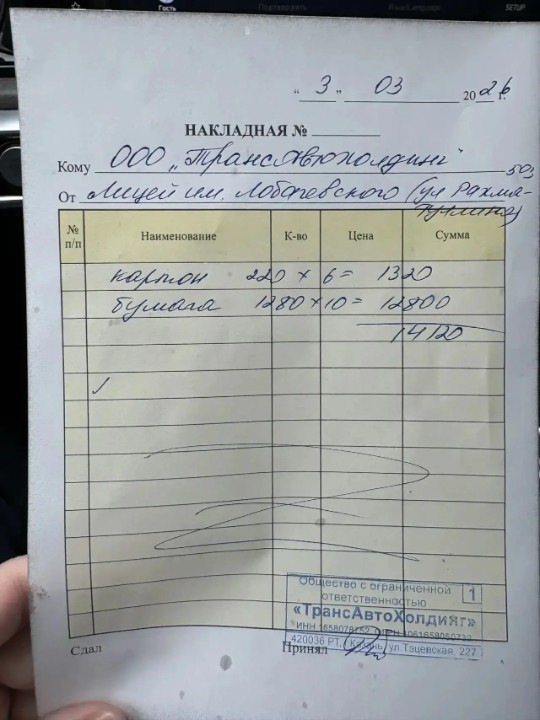 SETUP
"3" 03 2026 г.
НАКЛАДНАЯ №
Кому ООО „ТрансАвтоХолдинг"
От Лицей им. Лобачевского (ул Рахма-
туллина)
№ п/п Наименование К-во Цена Сумма
картон 220 × 6 = 1320
бумага 1280 × 10 = 12800
14120
Общество с ограниченной 1
ответственностью
«ТрансАвтоХолдинг»
420036 РТ, г.Казань, ул.Тэцевская, 227
Сдал Принял